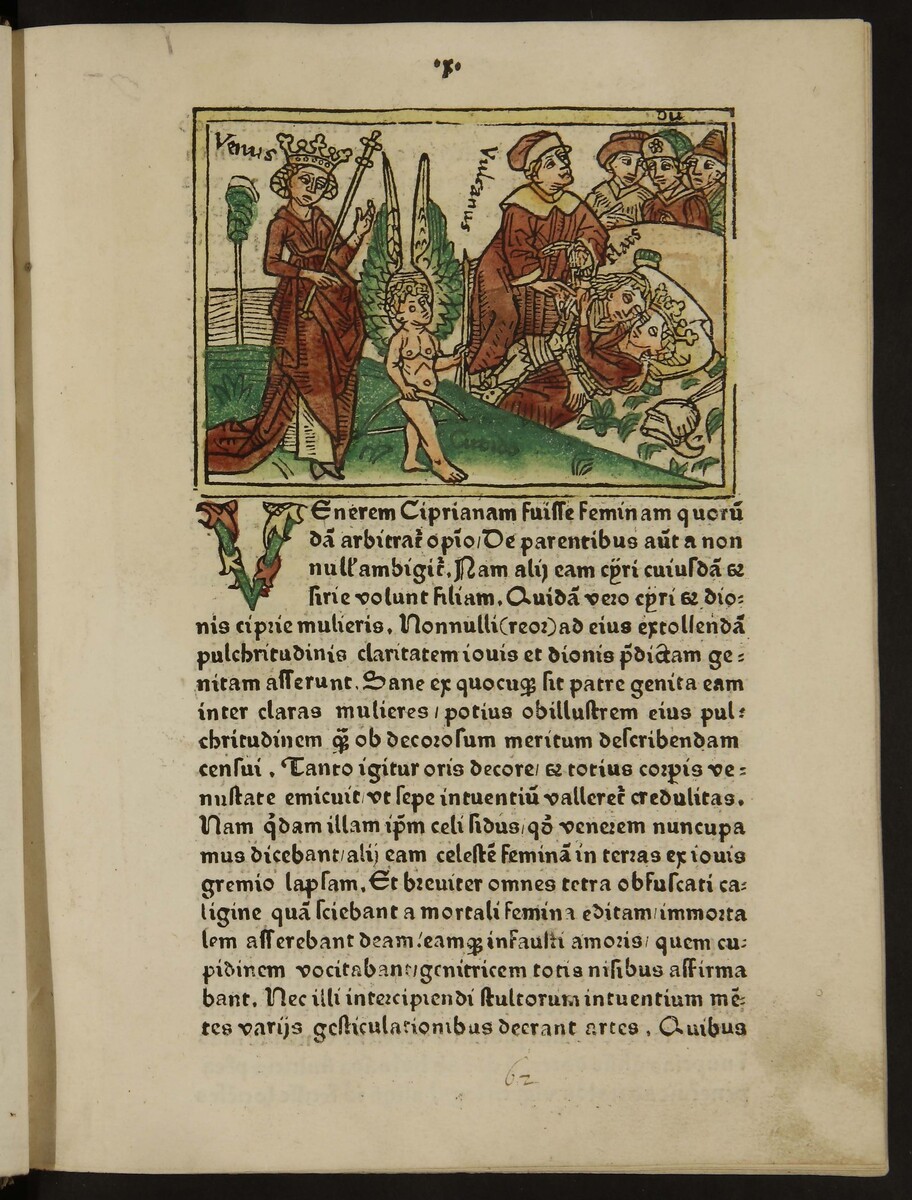 ·x·
du
Venus
Vulcanus
Mars
Cupido
VEnerem Ciprianam fuisse feminam quorũ
dã arbitrat᷑ opĩo/De parentibus aũt a non
null' ambigit᷑. Nam alij eam cp̃ri cuiusdã &
sirie volunt filiam. Quidã vero cp̃ri & dio:
nis ciprie mulieris. Nonnulli(reor)ad eius extollendã
pulchritudinis claritatem iouis et dionis p̃dictam ge:
nitam asserunt. Sane ex quocuqꝫ sit patre genita eam
inter claras mulieres/potius ob illustrem eius pul:
chritudinem qꝫ̃ ob decorosum meritum describendam
censui. Tanto igitur oris decore/& totius corpis ve:
nustate emicuit/vt sepe intuentiũ valleret᷑ credulitas.
Nam q̃dam illam ip̃m celi sidus/qõ venerem nuncupa
mus dicebant/alij eam celestẽ feminã in terras ex iouis
gremio lapsam. Et breuiter omnes tetra obfuscati ca:
ligine quã sciebant a mortali femina editam/immorta
lem asserebant deam/eamqꝫ infausti amoris/quem cu:
pidinem vocitabant/genitricem totis nisibus affirma
bant. Nec illi intercipiendi stultorum intuentium mẽ:
tes varijs gesticulationibus deerant artes. Quibus
62